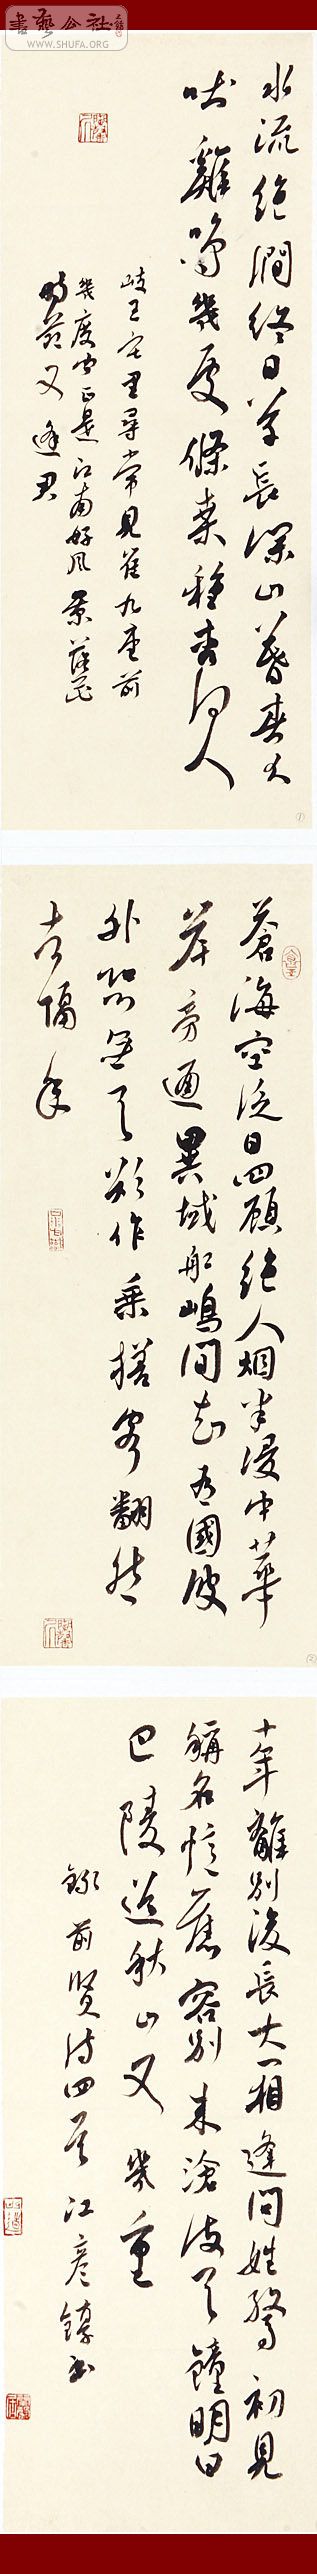 書藝公社
WWW.SHUFA.ORG
水流絕澗終日草長深山暮春犬
吠雞鳴幾處條桑種杏何人
岐王宅里尋常見崔九堂前
幾度聞正是江南好風景落花
時節又逢君
蒼海空泛日四顧絕人烟半浸中華
岸旁通異域船嶋間知有國波
外恐無天欲作乘槎客翻愁
去隔年
十年離別後長大一相逢問姓驚初見
稱名憶舊容別來滄海天鐘明日
巴陵道秋山又幾重
錄前賢詩四首江彥書